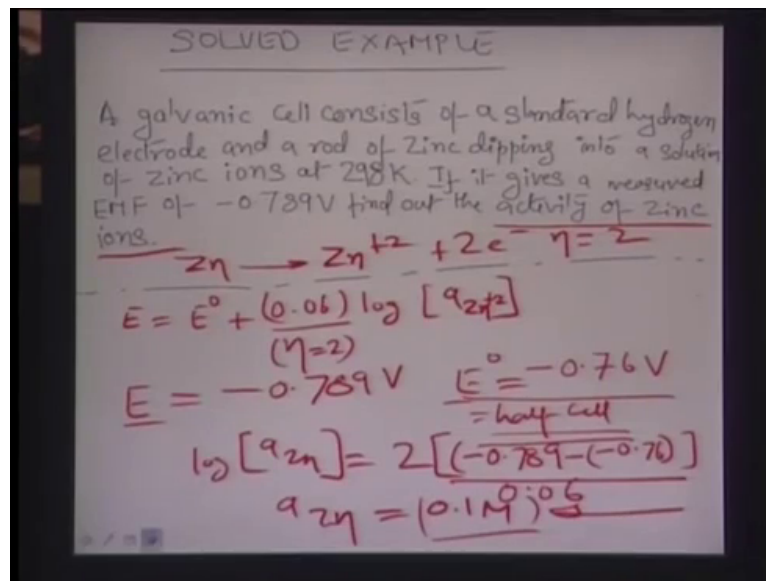 SOLVED EXAMPLE
A galvanic cell consists of a standard hydrogen
electrode and a rod of Zinc dipping into a solution
of zinc ions at 298K. If it gives a measured
EMF of -0.789V find out the activity of zinc
ions.
Zn → Zn+2 + 2e- η=2
E = E° + (0.06) log [azn+2]
(η=2)
E = -0.789V E° = -0.76V
= half cell
log [azn] = 2[(-0.789-(-0.76)]
0.06
azn = (0.1M)